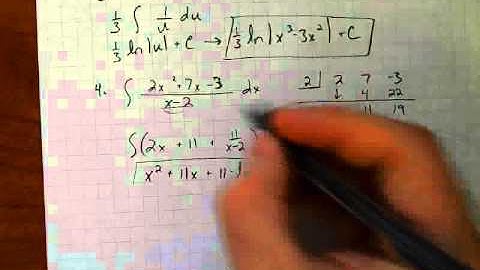 1/3 ∫ 1/u du
1/3 ln|u| + C → 1/3 ln|x³-3x²| + C
4. ∫ (2x²+7x-3)/(x-2) dx
2 | 2 7 -3
↓ 4 22
11 19
∫(2x + 11 + 11/(x-2)
x² + 11x + 11